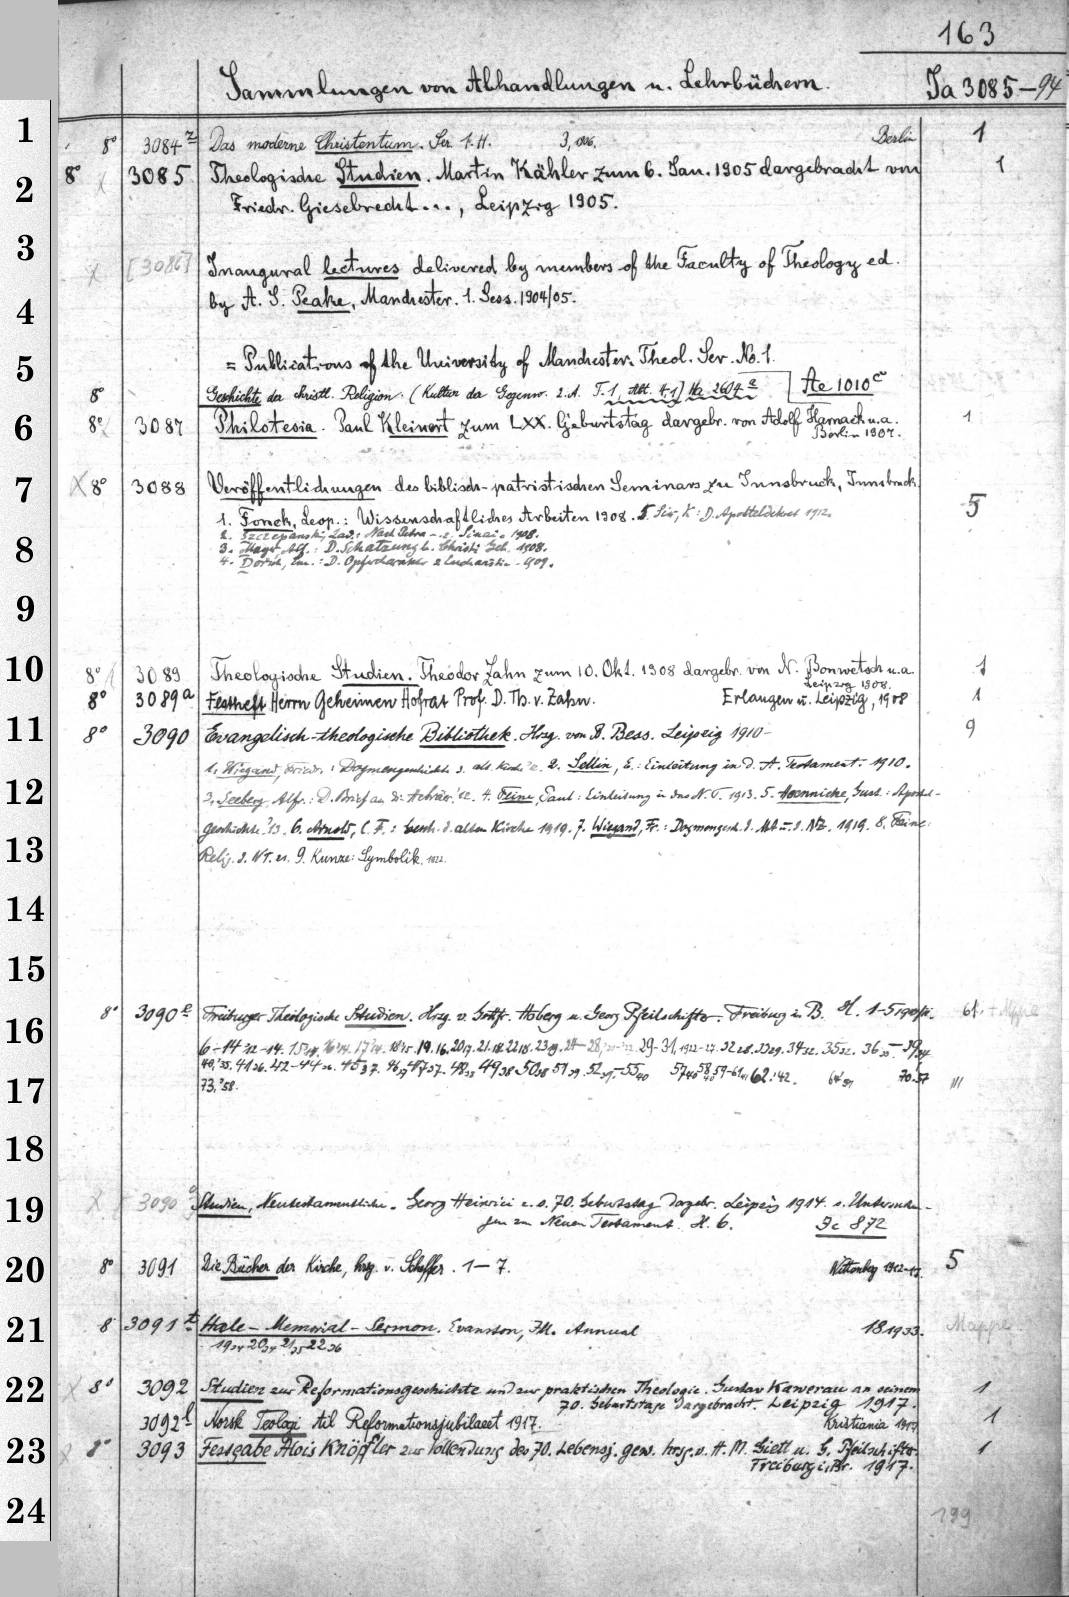 163
Sammlungen von Abhandlungen u. Lehrbüchern. Ja 3085-94
1 8° 3084 z Das moderne Christentum. Ser. 1. H. 3, Berlin 1
2 8° 3085 Theologische Studien. Martin Kähler zum 6. Jan. 1905 dargebracht von 1
Friedr. Giesebrecht..., Leipzig 1905.
3 [3086] Inaugural lectures delivered by members of the Faculty of Theology ed.
4 by A. S. Peake, Manchester. 1. Sess. 1904/05.
5 = Publications of the University of Manchester. Theol. Ser. No. 1.
8° Geschichte der christl. Religion. (Kultur der Gegenw. 2. A. T. 1, Abt. 4,1) Ae 1010 c
6 8° 3087 Philotesia. Paul Kleinert zum LXX. Geburtstag dargebr. von Adolf Harnack u.a. 1
Berlin 1907.
7 8° 3088 Veröffentlichungen des biblisch-patristischen Seminars zu Innsbruck, Innsbruck
1. Fonck, Leop.: Wissenschaftliches Arbeiten 1908. 5. K: D. Aposteldekret 1912. 5
2. Szczepanski, Lad.: Nach Petra - z. Sinai. 1908.
8 3. Alf.: D. Schatzung b. Christi Geb. 1908.
4. Dorsch, Em.: D. Opfercharakter d Eucharistie. 1909.
9
10 8° 3089 Theologische Studien. Theodor Zahn zum 10. Okt. 1908 dargebr. von N. Bonwetsch u.a. 1
Leipzig 1908.
8° 3089 a Festheft Herrn Geheimen Hofrat Prof. D. Th. v. Zahn. Erlangen u. Leipzig, 1908 1
11 8° 3090 Evangelisch-theologische Bibliothek. Hrsg. von B. Bess. Leipzig 1910- 9
1. Wiegand, Friedr.: Dogmengeschichte d. alt. Kirche 2. Sellin, E.: Einleitung in d. A. Testament. 1910.
12 3. Seeberg, Alfr.: D. Brief an die Hebräer. '12. 4. Feine, Paul: Einleitung in das N.T. 1913. 5. Hoennicke, Gust.: Apostel-
geschichte '13. 6. Arnold, C. F.: Gesch. d. alten Kirche 1919. 7. Wiegand, Fr.: Dogmengesch. d. MA u. d. NZ. 1919. 8. Feine:
13 Relig. d. NT. 21. 9. Kunze: Symbolik. 1922.
14
15
16 8° 3090 e Freiburger Theologische Studien. Hrsg. v. Gottfr. Hoberg u. Georg Pfeilschifter. Freiburg i. B. H. 1-5 1910/11. 61. + Mappe
6-14 '12-14. 15 '14. 16 '14. 17 '14. 18 '15. 19. 16. 20 17. 21. 18. 22 18. 23 19. 24-28, 29-31, 1922-27. 32 28. 33 29. 34 32. 35 32. 36 39 34
17 40, '35. 41 36. 42-44 36. 45 37. 46 37 47 37. 48 38 49 38 50 38 51 39. 52 39.-55 40 57 40 58 40 59-61 41 62. '42. 64 51 70. 57 III
73. '58.
18
19 3090 g Studien, Neutestamentliche. Georg Heinrici z. s. 70. Geburtstag dargebr. Leipzig 1914 s. Untersuchun-
gen zum Neuen Testament. H. 6. Ic 872
20 8° 3091 Die Bücher der Kirche, hrsg. v. Scheffer. 1-7. Wittenberg 1912-13. 5
21 8 3091 t Hale-Memorial-Sermon. Evanston, Ill. Annual 18 1933. Mappe
19 34 20 34 21 35 22 36
22 8° 3092 Studien zur Reformationsgeschichte und zur praktischen Theologie. Gustav Kawerau an seinem 1
70. Geburtstage dargebracht. Leipzig 1917.
3092 f Norsk Teologi til Reformationsjubilaeet 1917. Kristiania 1917 1
23 8° 3093 Festgabe Alois Knöpfler zur Vollendung des 70. Lebensj. gew. hrsg. v. H. M. Gietl u. G. Pfeilschifter. 1
Freiburg i. Br. 1917.
24 199